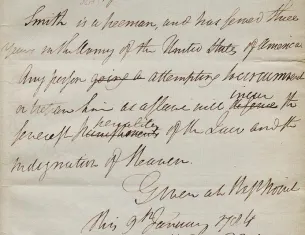 Smith is a freeman, and has served three
years in the Army of the United States of America
Any person going to attempting to
or retain him as a slave will incur the
severest penalties punishments of the Law and the
indignation of Heaven.
Given at
this 9th January 1784